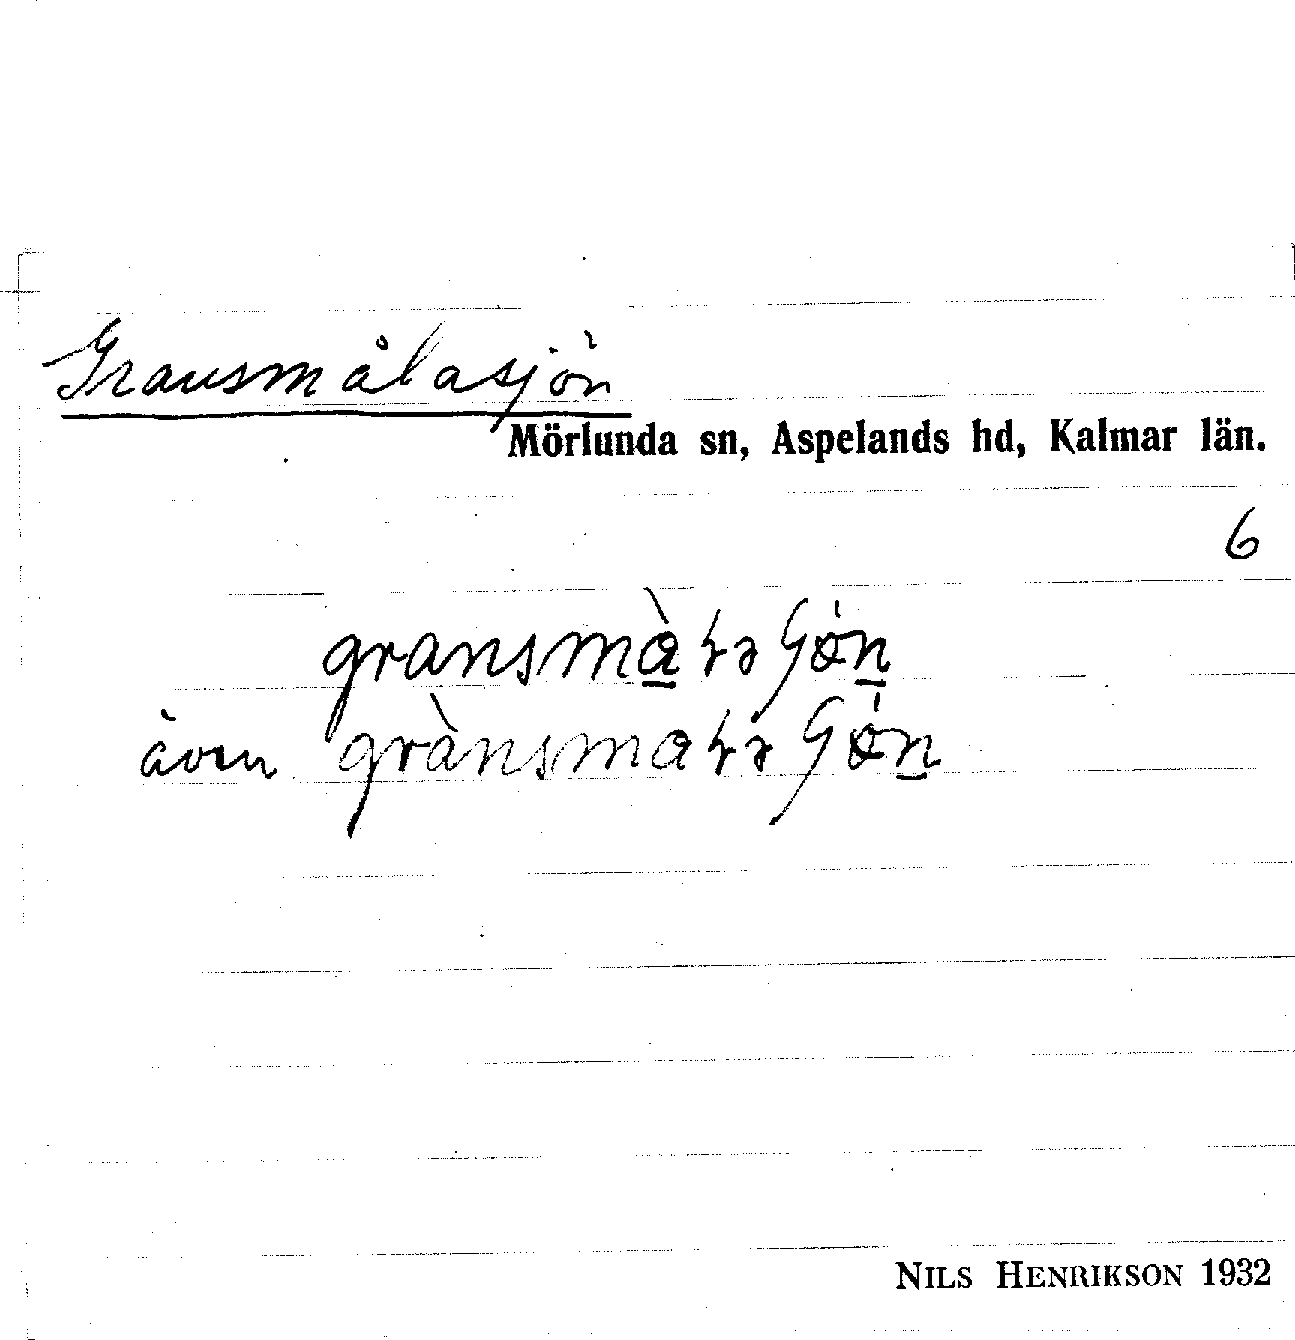 Gransmålasjön
Mörlunda sn, Aspelands hd, Kalmar län.
6
även
NILS HENRIKSON 1932